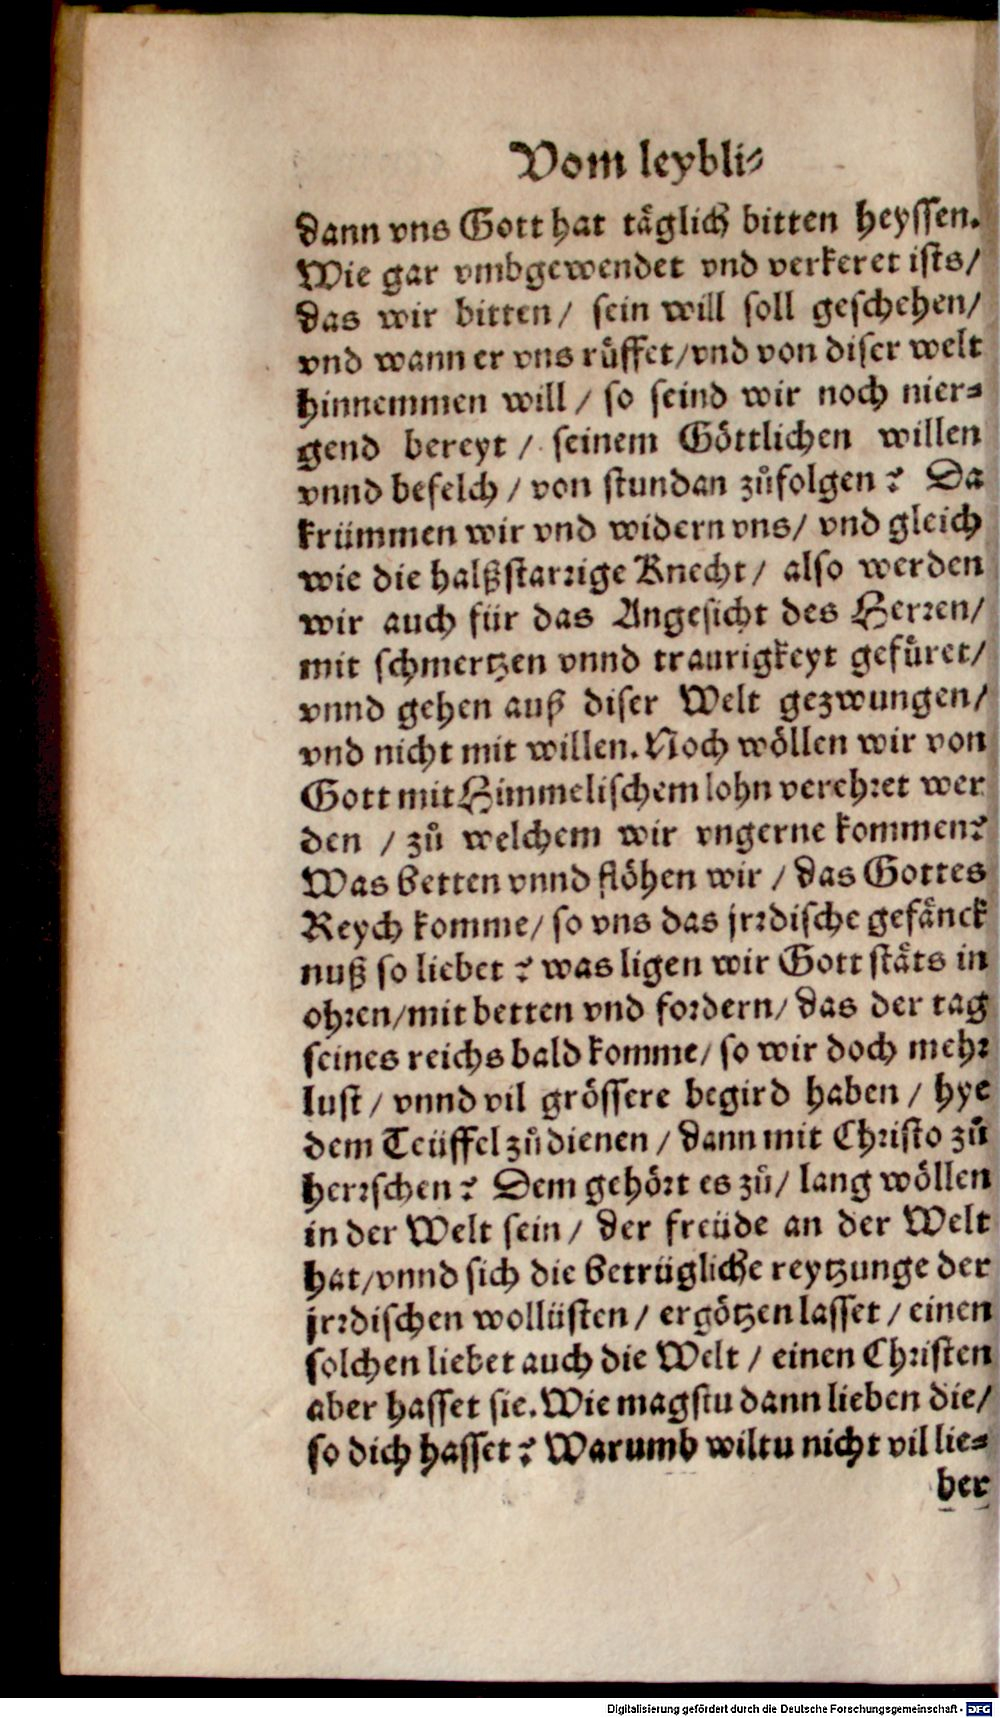 Vom leybli⸗
dann vns Gott hat täglich bitten heyssen.
Wie gar vmbgewendet vnd verkeret ists/
das wir bitten/ sein will soll geschehen/
vnd wann er vns rüffet/vnd von diser welt
hinnemmen will / so seind wir noch nier⸗
gend bereyt / seinem Göttlichen willen
vnnd befelch / von stundan zůfolgen? Da
krümmen wir vnd widern vns/ vnd gleich
wie die halßstarrige Knecht/ also werden
wir auch für das Angesicht des Herren/
mit schmertzen vnnd traurigkeyt gefüret/
vnnd gehen auß diser Welt gezwungen/
vnd nicht mit willen. Noch wöllen wir von
Gott mit Himmelischem lohn verehret wer
den / zů welchem wir vngerne kommen?
Was betten vnnd flöhen wir / das Gottes
Reych komme/ so vns das jrrdische gefänck
nuß so liebet? was ligen wir Gott stäts in
ohren/mit betten vnd fordern/ das der tag
seines reichs bald komme/ so wir doch mehr
lust / vnnd vil grössere begird haben / hye
dem Teüffel zůdienen / dann mit Christo zů
herrschen? Dem gehört es zů/ lang wöllen
in der Welt sein/ der freüde an der Welt
hat/vnnd sich die betrügliche reytzunge der
jrrdischen wollüsten / ergötzen lasset / einen
solchen liebet auch die Welt / einen Christen
aber hasset sie. Wie magstu dann lieben die/
so dich hasset? Warumb wiltu nicht vil lie⸗
ber
Digitalisierung gefördert durch die Deutsche Forschungsgemeinschaft - DFG